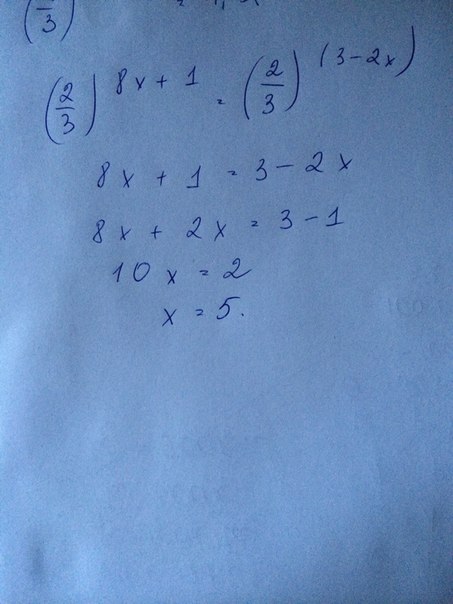 (2/3)^(8x + 1) = (2/3)^((3 - 2x))
8x + 1 = 3 - 2x
8x + 2x = 3 - 1
10x = 2
x = 5.